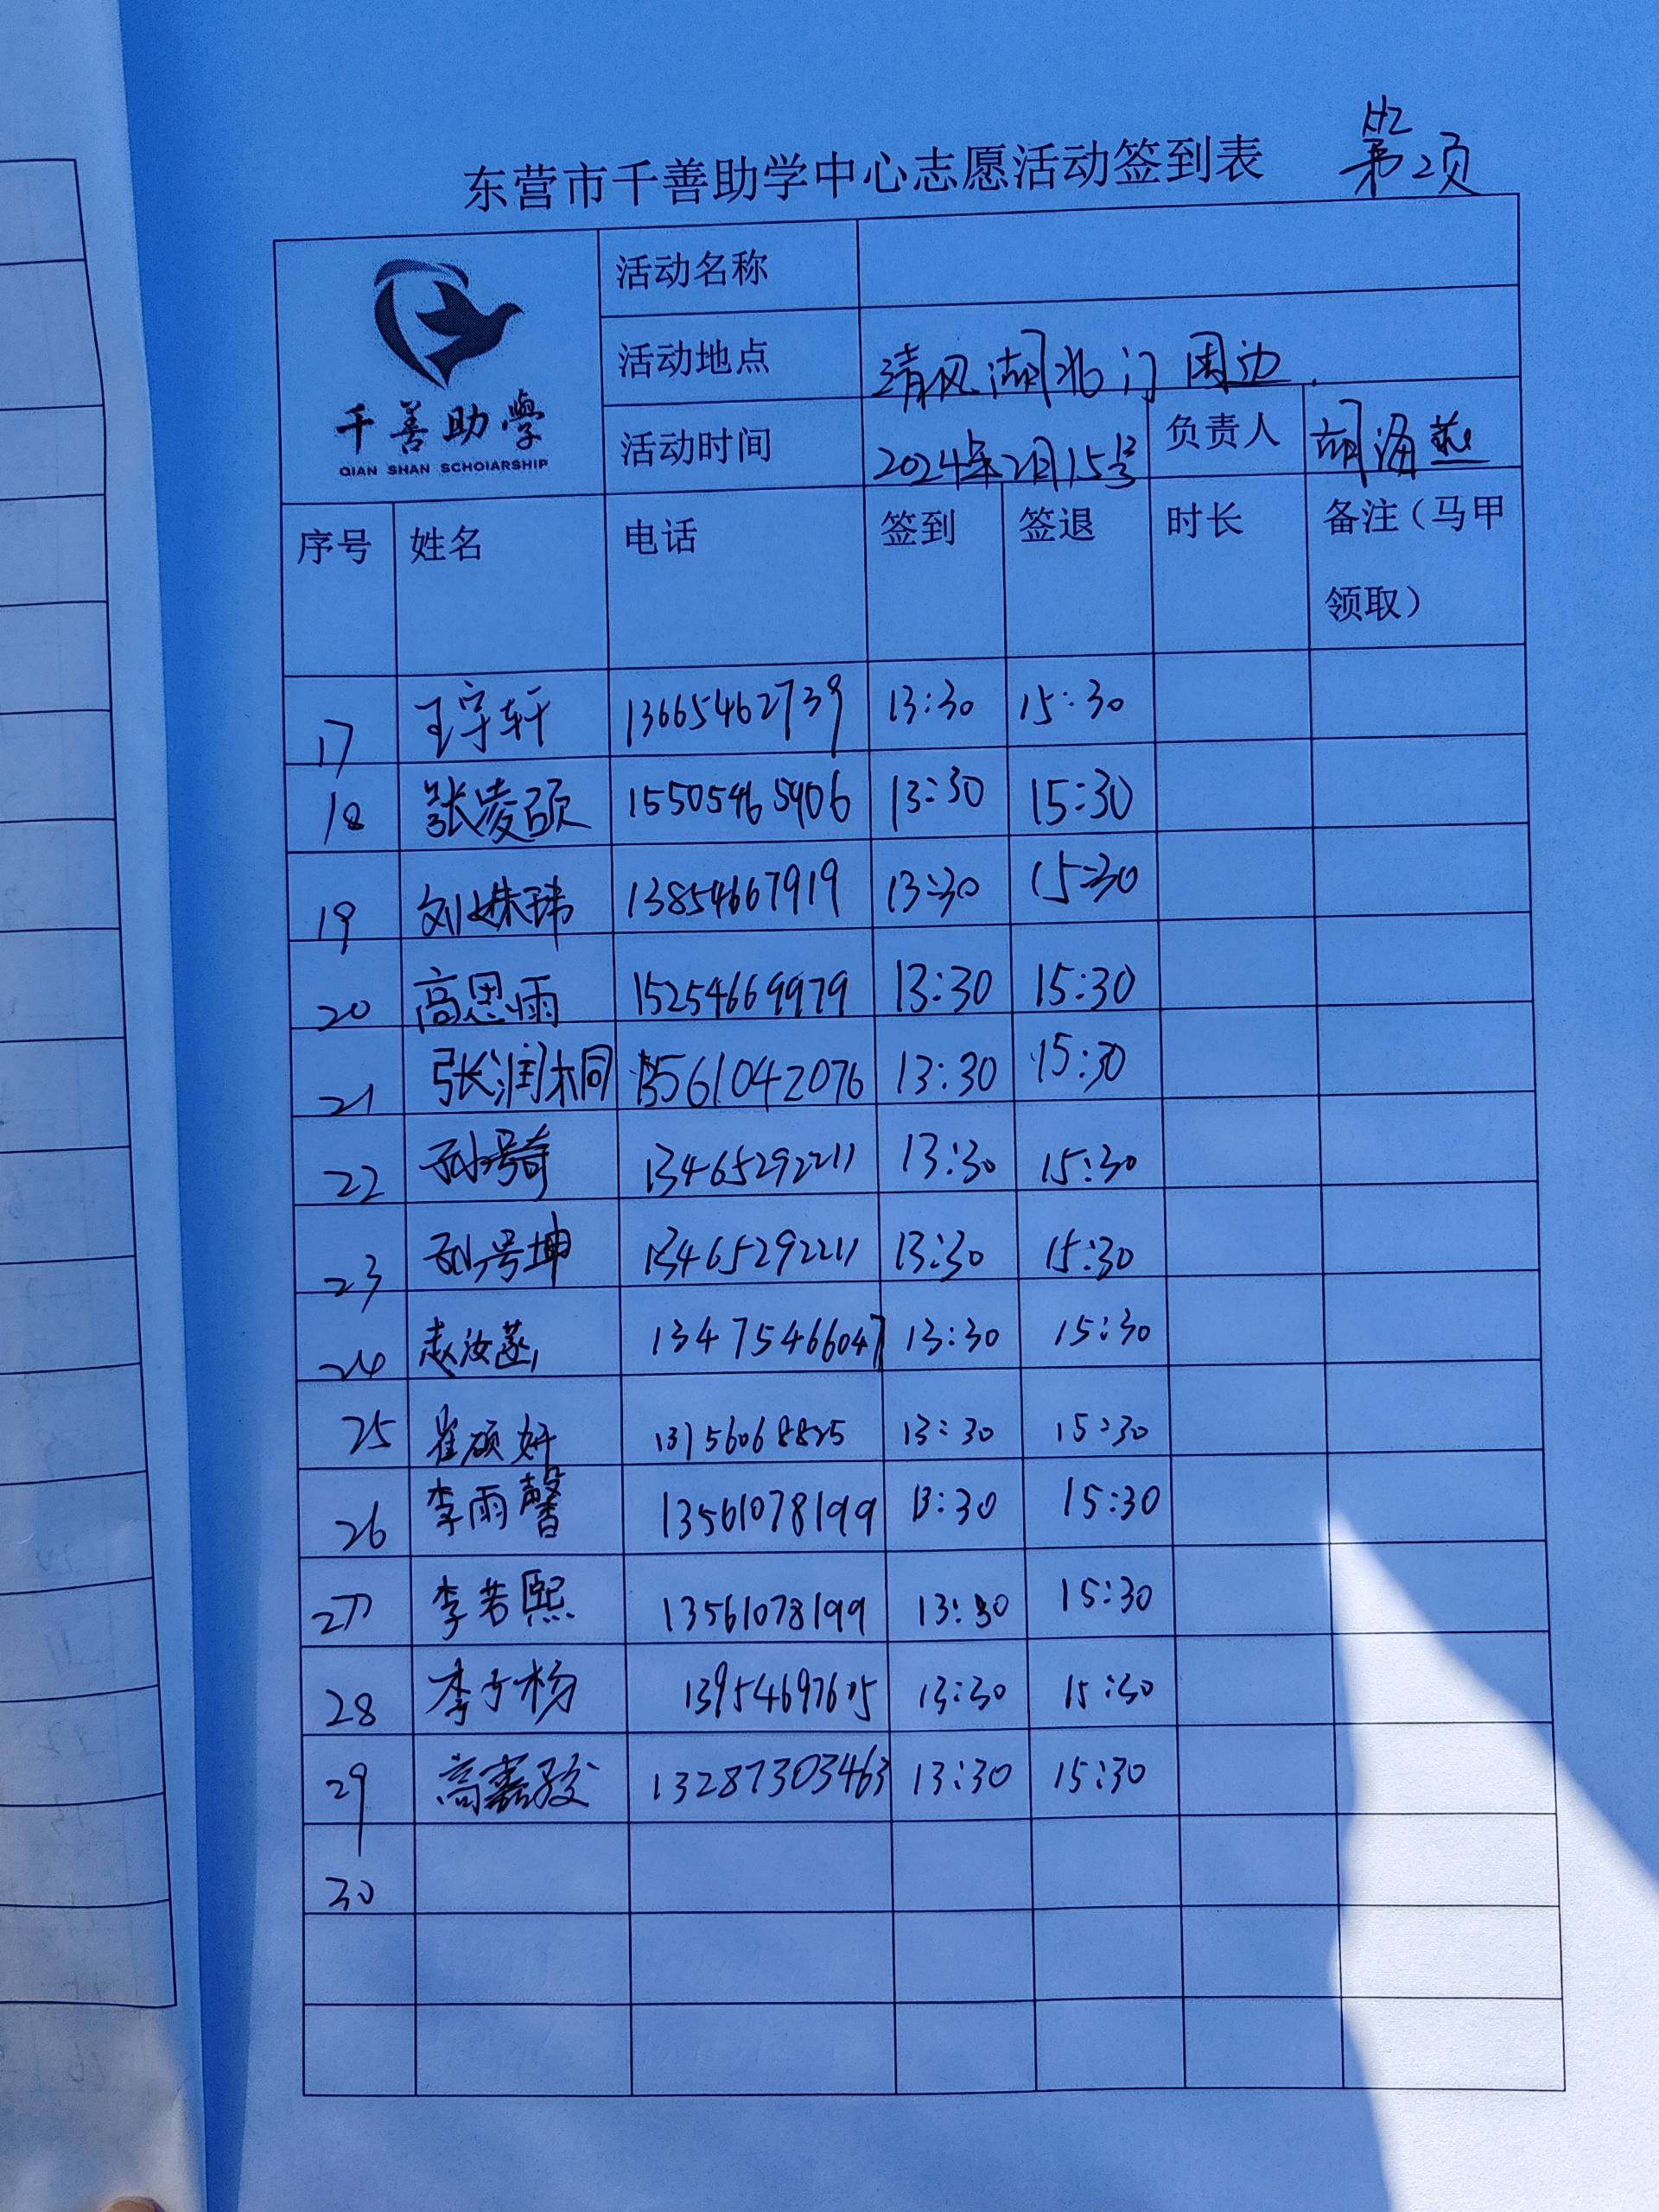 第2项
东营市千善助学中心志愿活动签到表
千善助學
QIAN SHAN SCHOIARSHIP
活动名称
活动地点 清风湖北门周边.
活动时间 2024年2月15号 负责人 胡海燕
序号 姓名 电话 签到 签退 时长 备注（马甲
领取）
17 王宇轩 13665462739 13:30 15:30
18 张凌硕 15505465906 13:30 15:30
19 刘姝玮 13854667919 13:30 15:30
20 高思雨 15254669979 13:30 15:30
21 张润桐 13561042076 13:30 15:30
22 孙号奇 13465292211 13:30 15:30
23 孙号坤 13465292211 13:30 15:30
24 赵汝菡 13475466047 13:30 15:30
25 崔硕妍 13756068825 13:30 15:30
26 李雨馨 13561078199 13:30 15:30
27 李若熙 13561078199 13:30 15:30
28 李子杨 13954697605 13:30 15:30
29 高嘉骏 13287303463 13:30 15:30
30